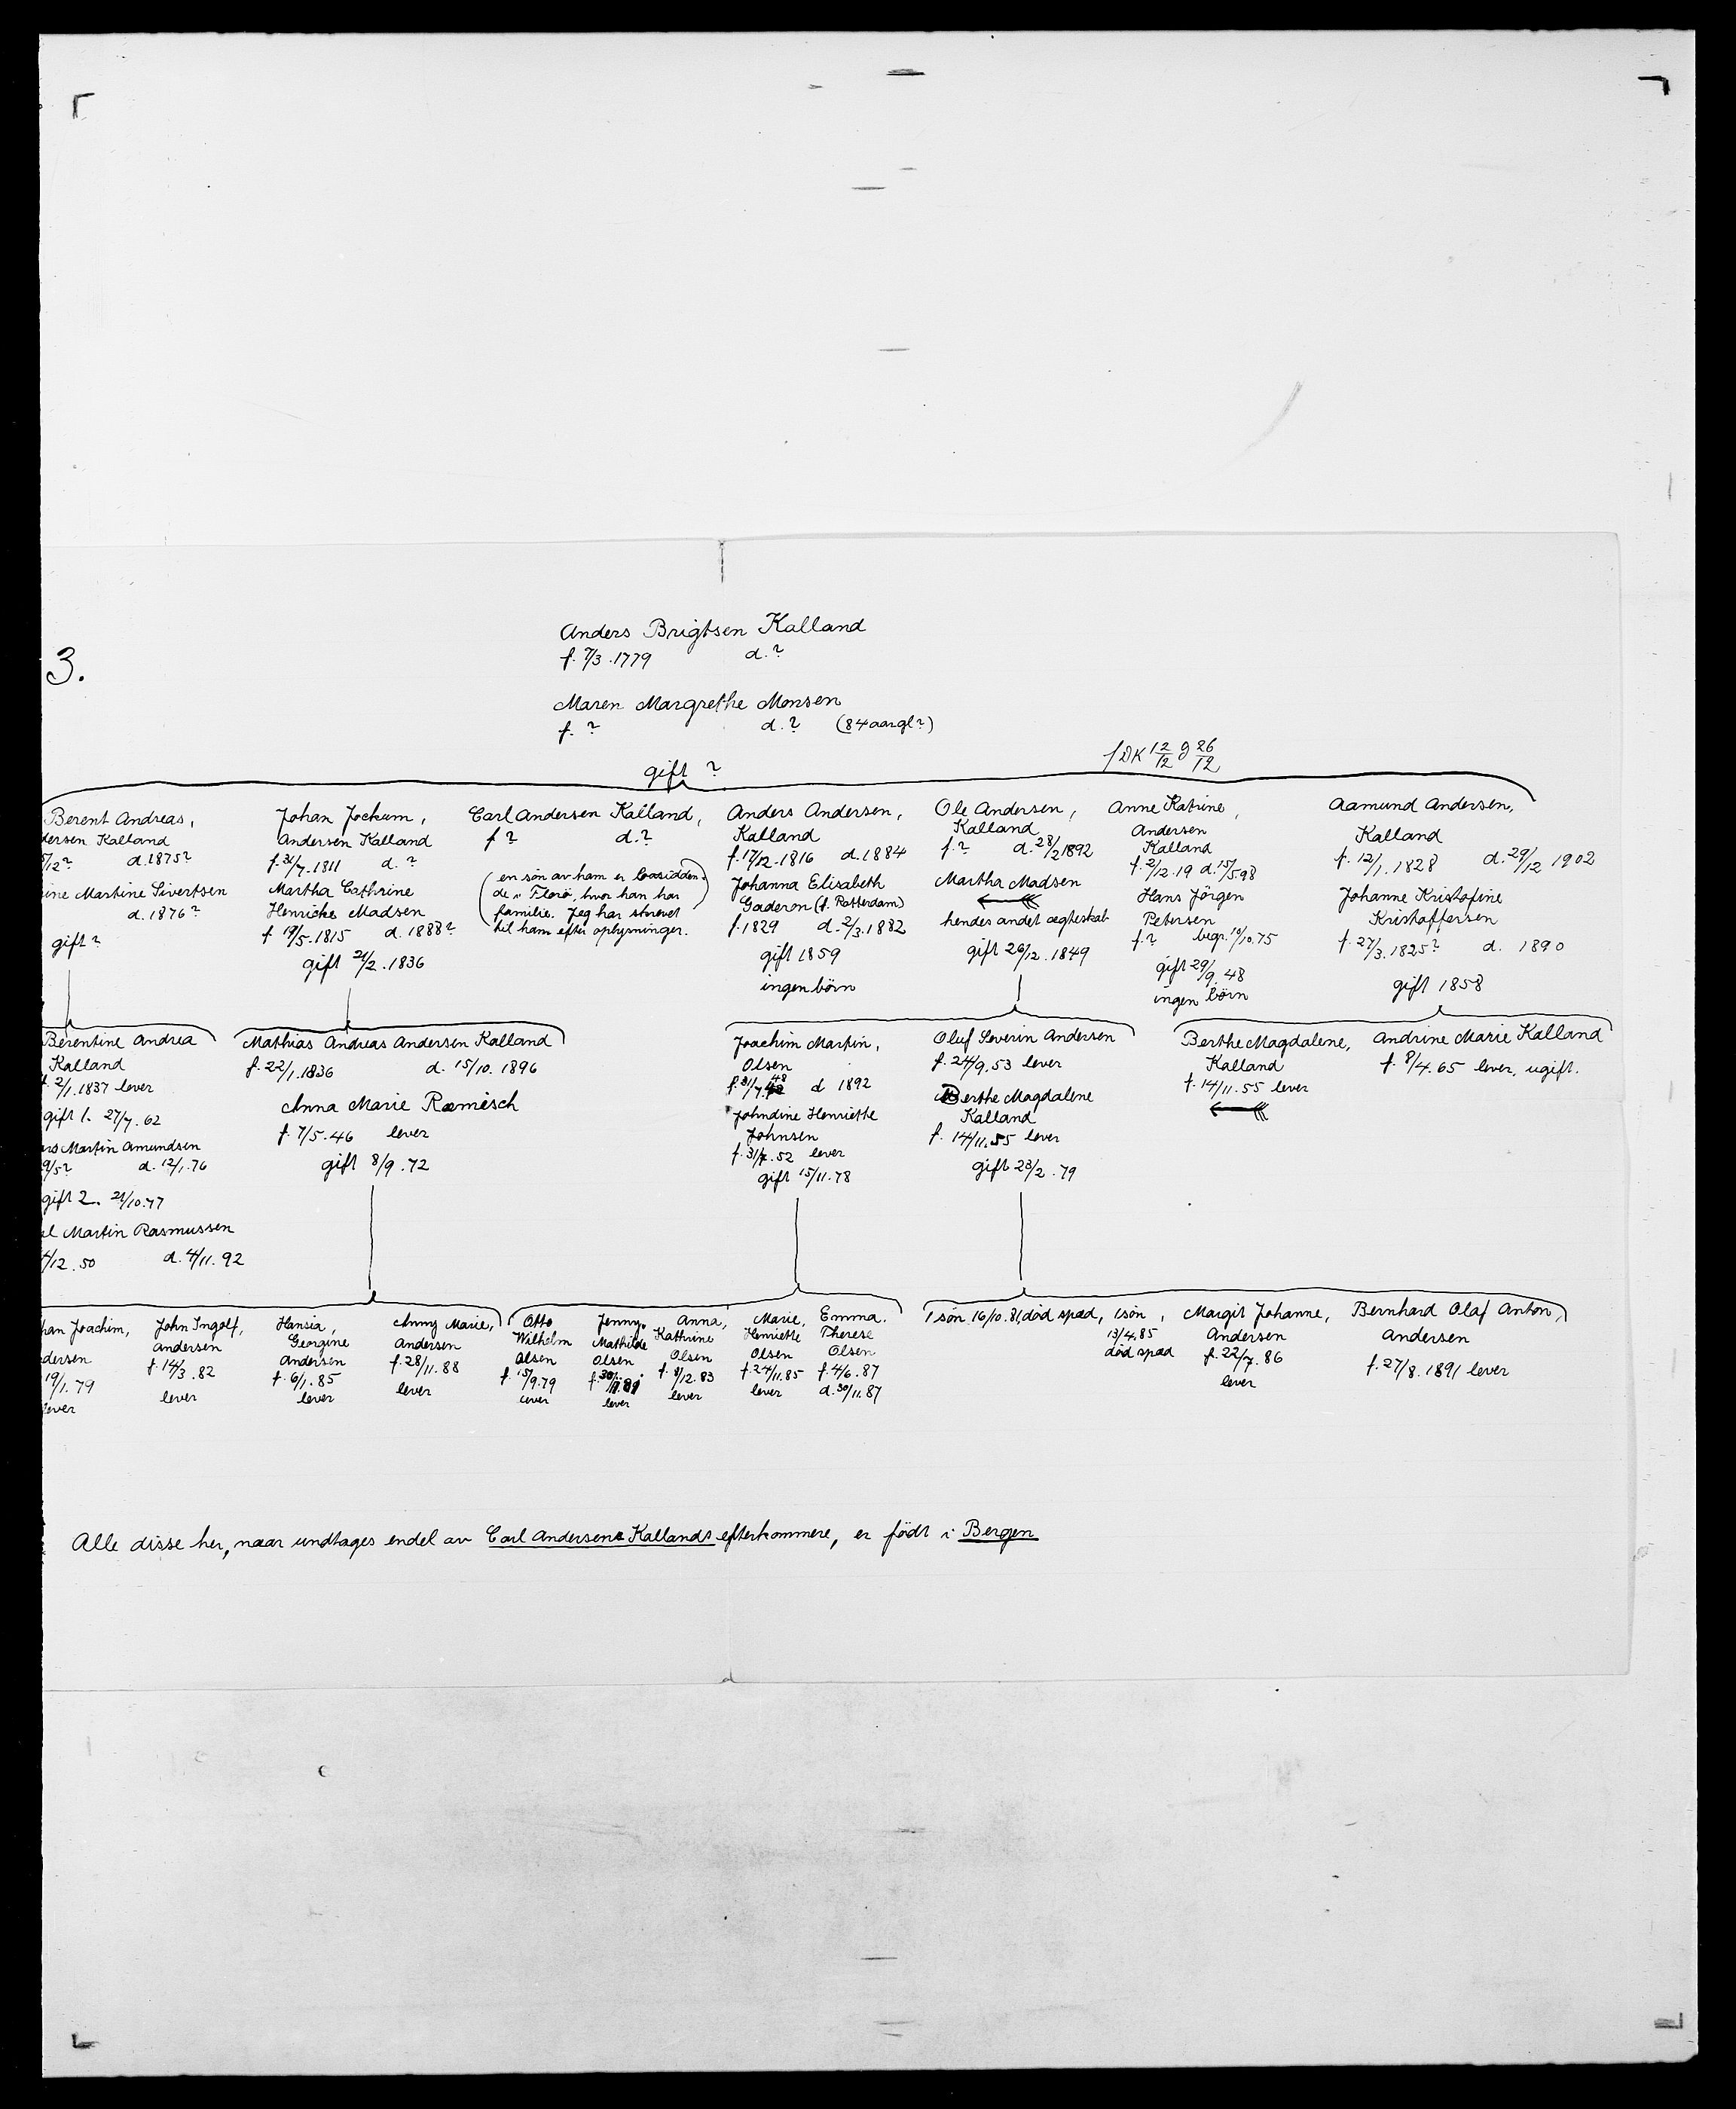 3.
Anders Brigtsen Kalland
f. 7/3.1779 d.?
Maren Margrethe Monsen
f. ? d. ? (84 aar gl?)
gift ?
12/2 g 26/12
Berent Andreas,
dersen Kalland
/12? d.1875?
ine Martine Sivertsen
d. 1876?
gift ?
Johan Jochum,
Andersen Kalland
f. 31/7.1811 d. ?
Martha Cathrine
Henricke Madsen
f 19/5.1815 d. 1888?
gift 21/2.1836
Carl Andersen Kalland,
f ? d.?
(en sön av ham er bosidden-
de i Florö, hvor han har
familie. Jeg har skrevet
til ham efter oplysninger.)
Anders Andersen,
Kalland
f. 17/12.1816 d.1884
Johanna Elisabeth
Gaderon (f. Rotterdam)
f. 1829 d. 2/3.1882
gift 1859
ingen börn
Ole Andersen,
Kalland
f. ? d. 28/2 1892
Martha Madsen
hendes andet ægteskab
gift 26/12.1849
Anne Katrine,
Andersen
Kalland
f. 2/12.19 d. 15/5 98
Hans Jörgen
Petersen
f. ? begr. 10/10.75
gift 29/9.48
ingen börn
Aamund Andersen,
Kalland
f. 12/1.1828 d. 29/12 1902
Johanne Kristofine
Kristoffersen
f. 27/3.1825? d. 1890
gift 1858
Berentine Andrea
Kalland
f. 2/1.1837 lever
gift 1. 27/7.62
ers Martin Amundsen
9/5? d. 12/1.76
gift 2. 21/10.77
el Martin Rasmussen
/12.50 d. 4/11.92
Mathias Andreas Andersen Kalland
f. 22/1.1836 d. 15/10.1896
Anna Marie Ræmisch
f. 7/5.46 lever
gift 8/9.72
Joachim Martin,
Olsen
f. 31/7.48 d 1892
Johndine Henriette
Johnsen
f. 31/7.52 lever
gift 15/11.78
Oluf Severin Andersen
f. 24/9.53 lever
Berthe Magdalene
Kalland
f. 14/11.55 lever
gift 23/2.79
Berthe Magdalene,
Kalland
f. 14/11.55 lever
Andrine Marie Kalland
f. 8/4.65 lever, ugift.
han Joachim,
dersen
19/1.79
lever
John Ingolf,
Andersen
f. 14/3.82
lever
Hansia,
Georgine
Andersen
f. 6/1.85
lever
Anny Marie,
Andersen
f. 28/11.88
lever
Otto
Wilhelm
Olsen
f. 15/9.79
lever
Jenny,
Mathilde
Olsen
lever
Anna,
Kathrine
Olsen
f. 9/12.83
lever
Marie,
Henriette
Olsen
f. 24/11.85
lever
Emma,
Therese
Olsen
f. 4/6.87
d. 30/11.87
1 sön 16/10.81, död spæd,
1 sön,
13/4.85
död spæd
Margit Johanne,
Andersen
f. 22/7.86
lever
Bernhard Olaf Anton,
Andersen
f. 27/8.1891 lever
Alle disse her, naar undtages endel av Carl Andersens Kallands efterkommere, er födt i Bergen